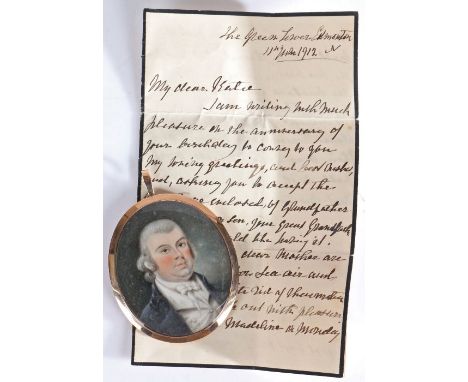 The Green Lower Edmonton
11th 1912 N
My dear Katie
I am writing with much
pleasure on the anniversary of
your birthday to convey to you
my loving greetings, and best wishes,
and, asking you to accept the
enclosed of Grandfather
son, your Great Grandfather
dear Mother are
sea air and
rid of rheumatism
out with pleasure
Madeline on Monday